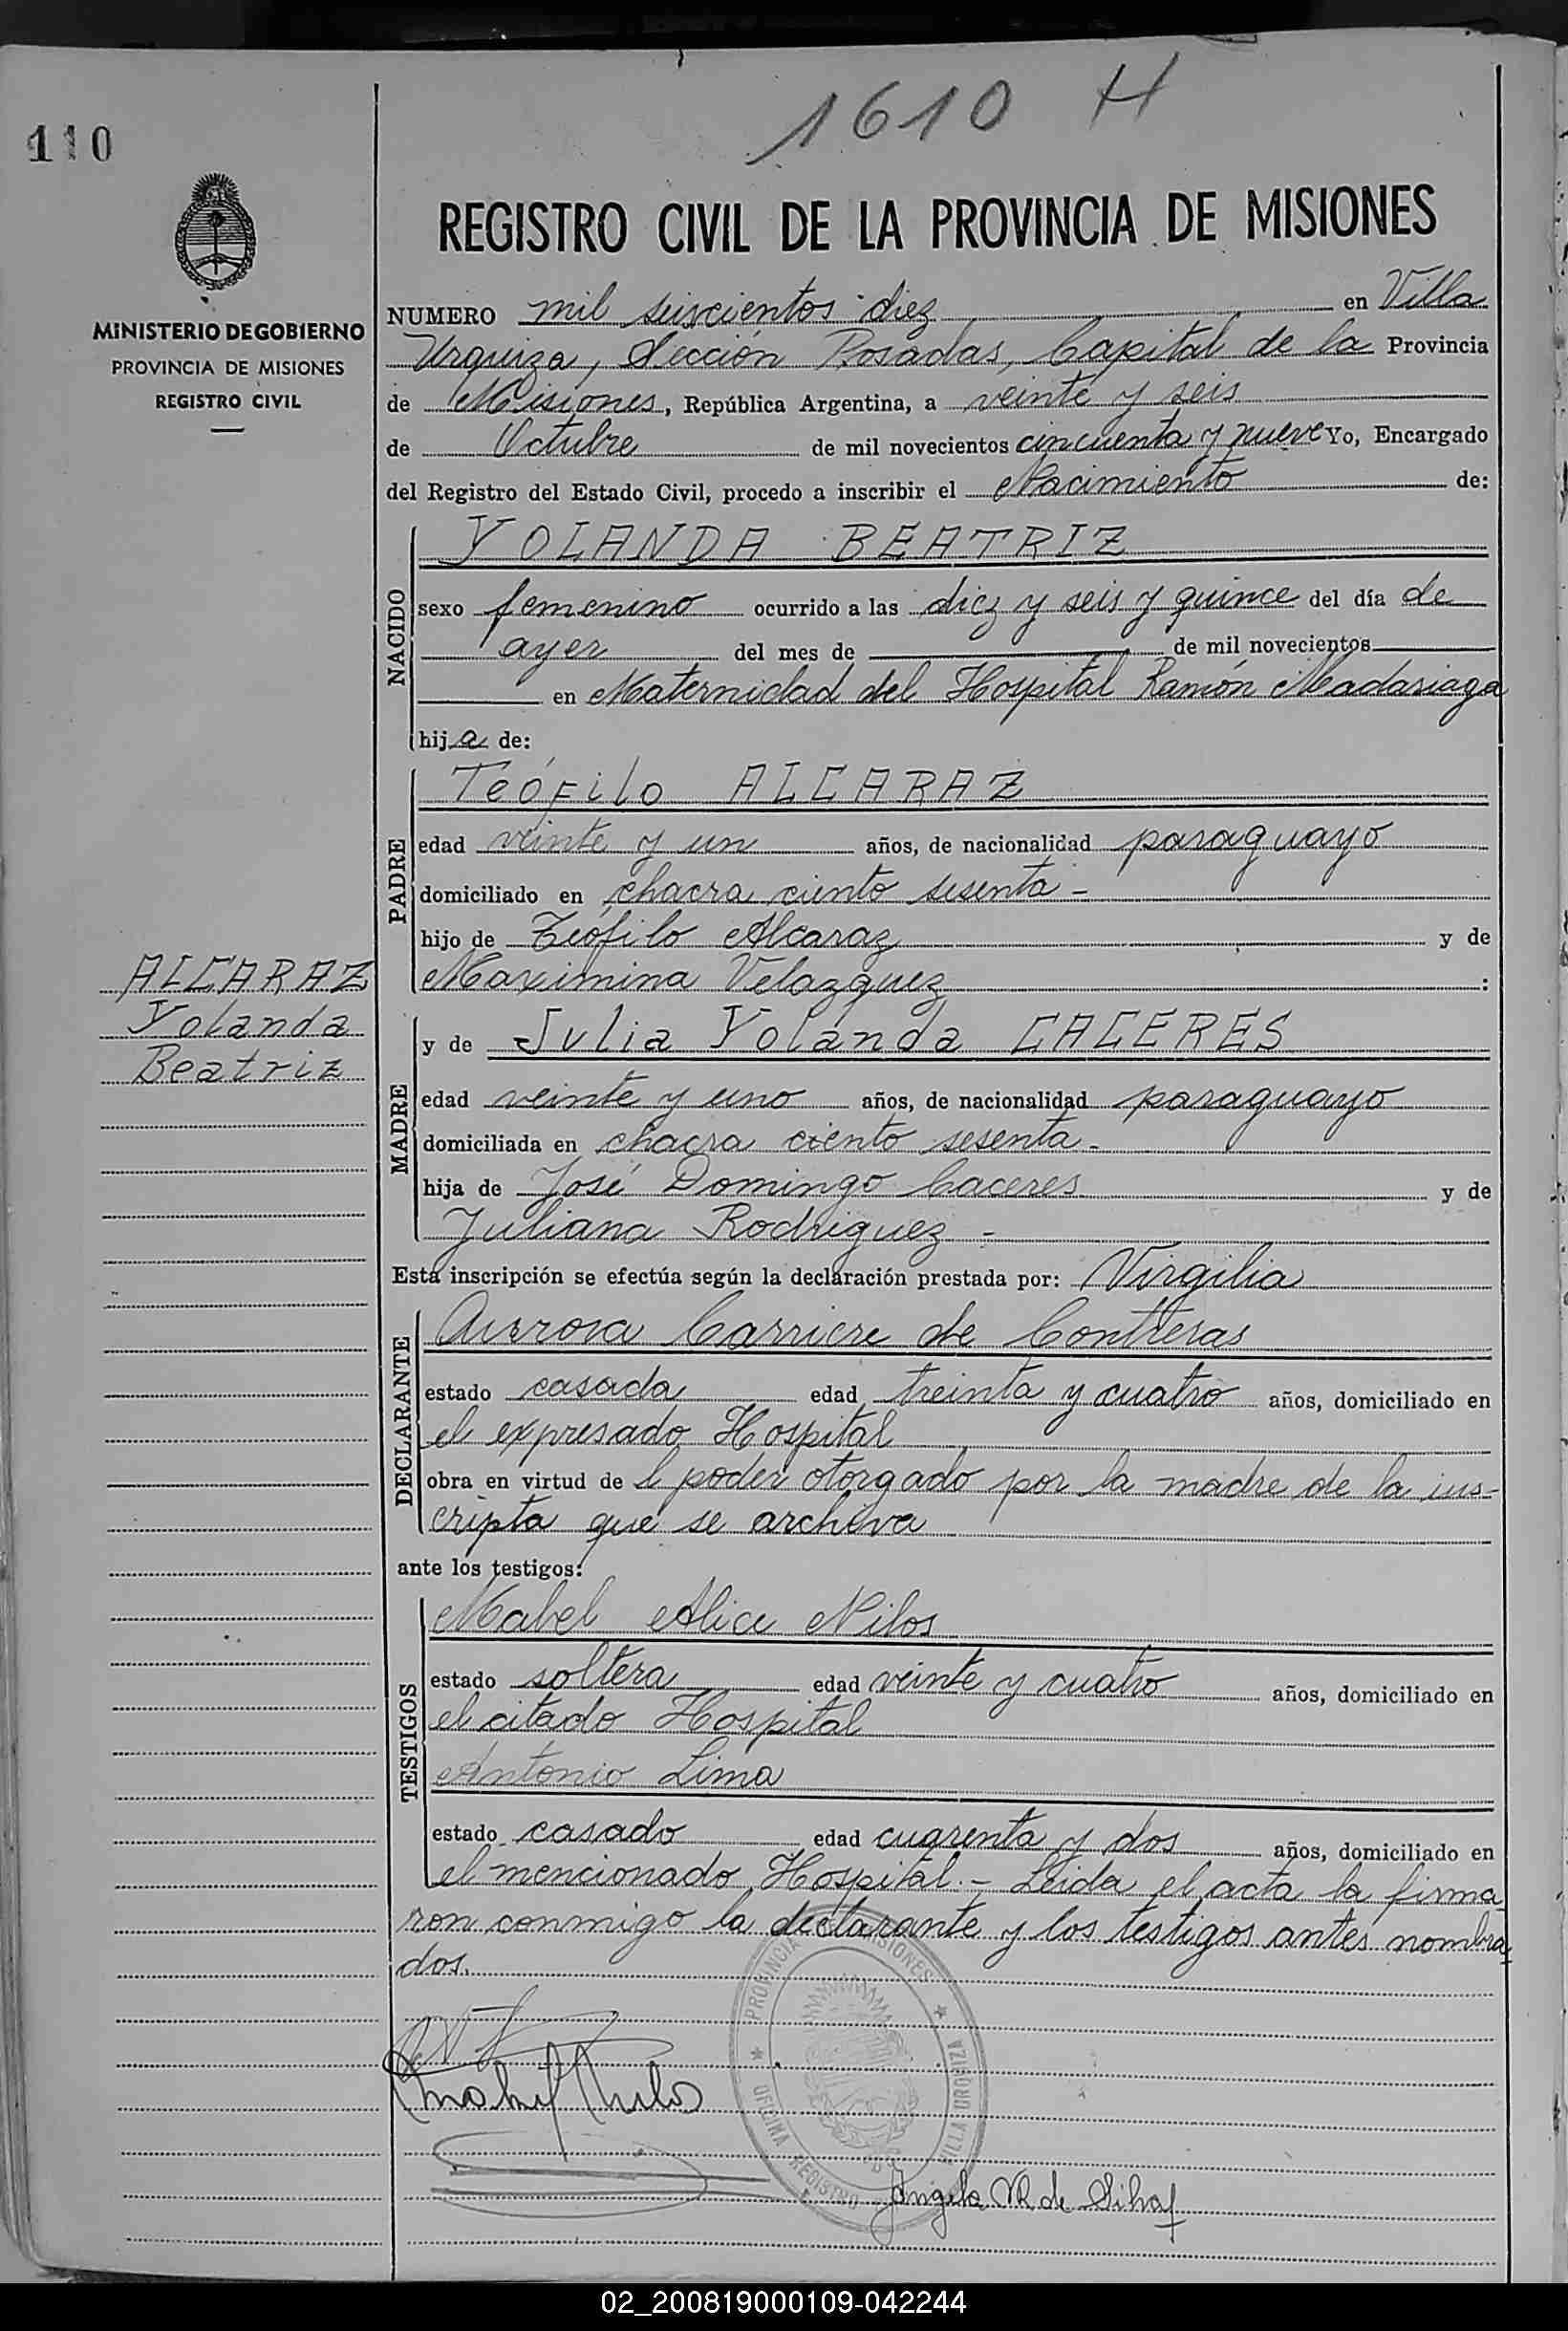 1610 H
110
REGISTRO CIVIL DE LA PROVINCIA DE MISIONES
MINISTERIO DE GOBIERNO
PROVINCIA DE MISIONES
REGISTRO CIVIL
NUMERO mil seiscientos diez en Villa
Urquiza, Sección Posadas, Capital de la Provincia
de Misiones, República Argentina, a veinte y seis
de Octubre de mil novecientos cincuenta y nueve Yo, Encargado
del Registro del Estado Civil, procedo a inscribir el Nacimiento de:
NACIDO
YOLANDA BEATRIZ
sexo femenino ocurrido a las diez y seis y quince del día de
ayer del mes de de mil novecientos
en Maternidad del Hospital Ramón Madariaga
hija de:
PADRE
Teófilo ALCARAZ
edad veinte y un años, de nacionalidad paraguayo
domiciliado en chacra ciento sesenta -
hijo de Teófilo Alcaraz y de
Maximina Velazquez :
ALCARAZ
Yolanda
Beatriz
MADRE
y de Julia Yolanda CACERES
edad veinte y uno años, de nacionalidad paraguayo
domiciliada en chacra ciento sesenta -
hija de José Domingo Caceres y de
Juliana Rodriguez -
Esta inscripción se efectúa según la declaración prestada por: Virgilia
DECLARANTE
Aurora Carriere de Contreras
estado casada edad treinta y cuatro años, domiciliado en
el expresado Hospital
obra en virtud de l poder otorgado por la madre de la ins-
cripta que se archiva
ante los testigos:
TESTIGOS
Mabel Alice Nilos
estado soltera edad veinte y cuatro años, domiciliado en
el citado Hospital
Antonio Lima
estado casado edad cuarenta y dos años, domiciliado en
el mencionado Hospital. - Leida el acta la firma
ron conmigo la declarante y los testigos antes nombra
dos.
PROVINCIA MISIONES
OFICINA REGISTRO VILLA URQUIZA
Angela R de Silva
02_200819000109-042244